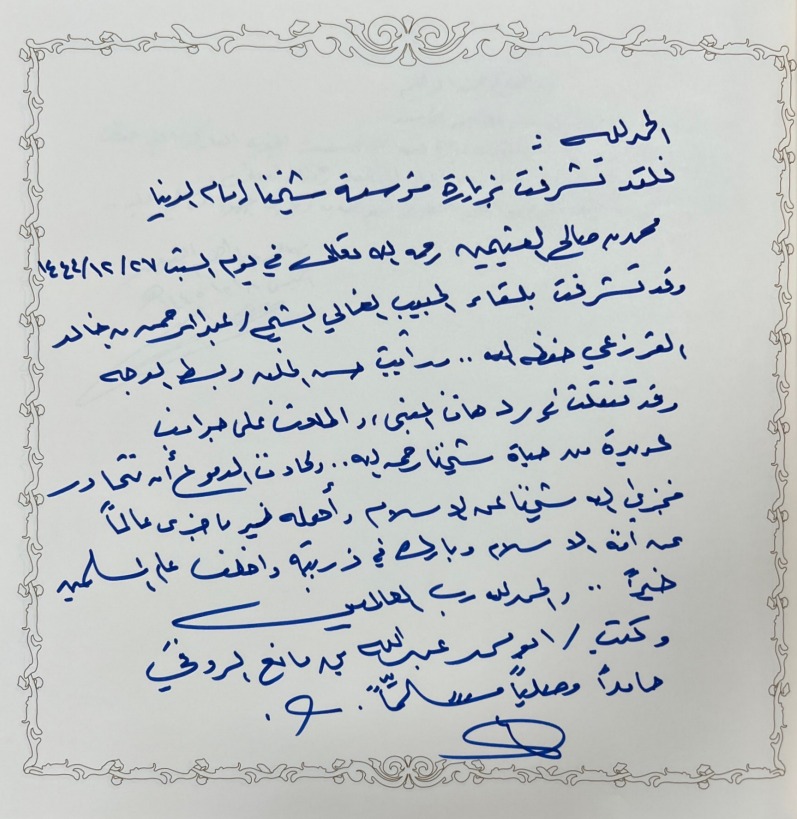 الحمد لله :
فلقد تشرفت بزيارة مؤسسة شيخنا إمام الدنيا
محمد بن صالح العثيمين رحمه الله تعالى في يوم السبت ١٤٤٤/١٢/٢٧
وقد تشرفت بلقاء الحبيب الغالي الشيخ / عبدالرحمن بن خالد
القرزعي حفظه الله .. ورأيت حسن الخلق وبسط الوجه
وقد تنقلت في ردهات المبنى، واطلعت على جوانب
عديدة من حياة شيخنا رحمه الله .. وكادت الدموع أن تتحادر
فجزى الله شيخنا عن الإسلام وأهله خير ما جزى عالماً
عن أمة الإسلام وبارك في ذريته وأخلف على المسلمين
خيراً .. والحمد لله رب العالمين
وكتب / أبو محمد عبدالله بن مانع الروقي
حامداً ومصلياً مسلماً .